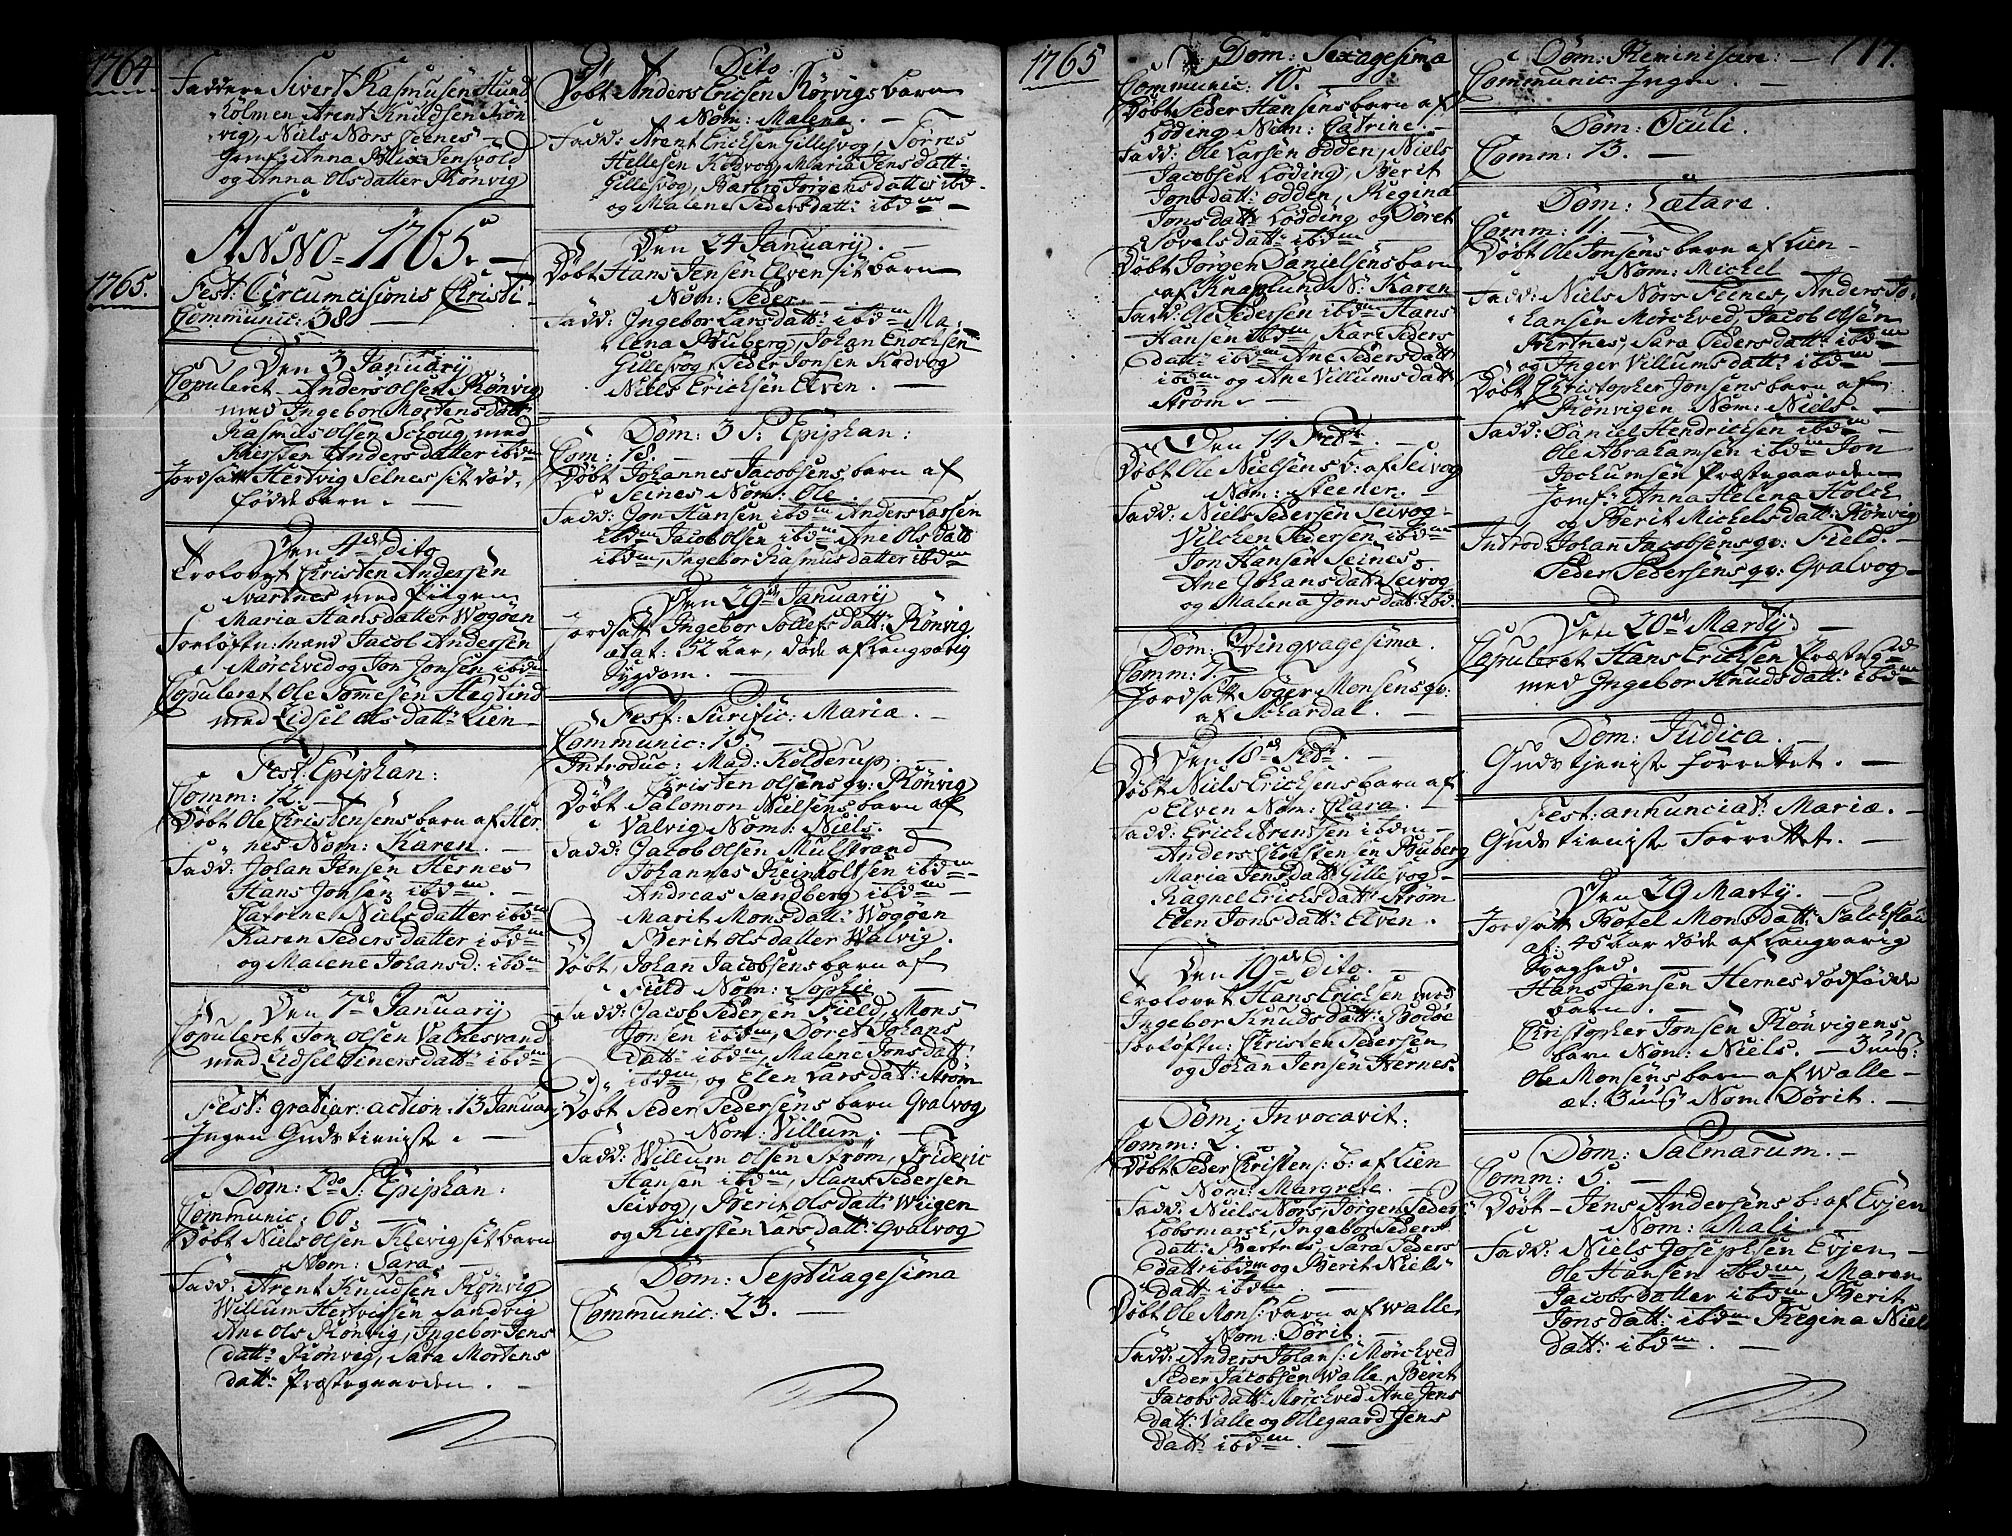 1764
Faddere Sivert Rasmusen Hund
holmen Arent Knudsen Rön
vig, Niels Nors Jeenes
Jomf: Anna Blix Jensvold
og Anna Olsdatter Rönvig
ANNO 1765.
1765.
Fest: Circumcisionis Christi
Communic: 38
Den 3 Januarij
Copuleret Anders Olsen Rönvig
med Ingebor Mortensdatt:
Rasmus Olsen Schoug med
Kiersten Andersdatter ibdm
Jordsatt Hertvig Selnes sit död,
födde barn.
Den 4de dito
Trolovet Christen Andersen
Svartnes med Piigen
Maria Hansdatter Wogöen
Forlöftn: mænd Jacob Andersen
Mörchved og Jon Jonsen ibdm
Copuleret Ole Tomesen Heglind
med Zidsel Olsdatt: Lien
Fest: Epiphan:
Comm: 12.
Döbt Ole Christensens barn af Her-
nes Nom: Karen.
Fadd: Johan Jensen Hernes
Hans Jonsen ibdm
Catrine Nielsdatter ibdm
Karen Pedersdatter ibdm
og Malene Johansd: ibdm
Den 7de Januarij
Copuleret Jon Olsen Valnesvand
med Zidsel Einersdatt: ibdm
Fest: gratiar: action: 13 Januar:
Ingen Gudstieniste.
Dom: 2do P: Epiphan:
Communic: 60.
Döbt Niels Olsen Klevig sit barn
Nom: Sara.
Fadd: Arent Knudsen Rönvig
Willum Hertvigsen Sandvig
Ane Ols Rönvig, Ingebor Jens
datt: Rönvig, Sara Mortens
datt: Præstegaarden.
Dito
Döbt Anders Ericsen Körvigs barn
Nom: Malena.
Fadd: Arent Ericsen Gillesvog, Torres
Hellesen Kodvog, Maria Jonsdatt:
Gillesvog, Barbra Jörgensdatter ibd
og Malene Pedersdatt: ibdm
Den 24 Januarij.
Döbt Hans Jensen Elven sit barn
Nom: Peder.
Fadd: Ingebor Larsdatt: ibdm Ma-
lena Buberg, Johan Enochsen
Gillesvog, Peder Jonsen Kodvog
Niels Erichsen Elven.
Dom: 3 P: Epiphan:
Com: 18.
Döbt Johannes Jacobsens barn af
Seines Nom: Ole.
Fadd: Jon Hansen ibdm Anders Larsen
ibdm Jacob Olsen ibdm Ane Olsdatt
ibdm, Ingebor Rasmusdatter ibdm
Den 29de Januarij
Jordsatt Ingebor Tollefsdatt: Rönvig
ætat: 52 aar, döde af langvarig
Sygdom.
Fest: Purific: Mariæ.
Communic: 15.
Introduc: Mad: Kolderup.
Christen Olsens qv: Rönvig
Döbt Salomon Nielsens barn af
Valvig Nom: Niels.
Fadd: Jacob Olsen Mulstrand
Johannes Reinholtsen ibdm
Andreas Sandberg ibdm
Marit Monsdatt: Wogöen
Berit Olsdatter Walvig.
Döbt, Johan Jacobsens barn af
Field Nom: Sophie
Fadd: Jacob Pedersen Field, Mons
Jonsen ibdm, Döret Johans
datt: ibdm, Malene Jonsdatt:
ibdm, og Elen Larsdatt: Ström
Döbt Peder Pedersens barn Qvalvog
Nom: Villum.
Fadd: Willum Olsen Ström, Frideric
Hansen ibdm, Hans Pedersen
Seivog, Berit Olsdatt: Wiigen
og Kiersten Larsdatt: Qvalvog
Dom: Septuagesima
Communic: 23.
1765
Dom: Sexagesima
Communic: 10.
Döbt Peder Hansens barn af
Löding Nom: Catrine.
Fadd: Ole Larsen Odden, Niels
Jacobsen Löding, Berit
Jonsdatt: Odden, Regina
Jonsdatt: Lödding og Döret
Povelsdatt: ibdm
Döbt Jörgen Danielsens barn
af Knaplund N: Karen
Fadd: Ole Pedersen ibdm Hans
Hansen ibdm Kare Peders
datt: ibdm Ane Pedersdatt
ibdm og Ane Villumsdatt
Ström.
Den 14 Febr.
Döbt Ole Nielsens b: af Seivog
Nom: Steener.
Fadd: Niels Pedersen Seivog
Vilchen Pedersen ibdm
Jon Hansen Seines.
Ane Johansdatt Seivog
og Malena Jonsdatt: ibd.
Dom: Qvinqvagesima.
Comm: 7.
Jordsatt Töger Monsens qv:
af Schardal.
Den 18de Febr.
Döbt Niels Erichsens barn af
Elven Nom: Clara.
Fadd: Erich Arentsen ibdm
Anders Christensen Buberg
Maria Jensdatt: Gillesvog
Ragnel Ericsdatt: Ström
Elen Jonsdatt: Elven.
Den 19de Dito.
Trolovet Hans Erichsen med
Ingebor Knudsdatt: Bodöe
Forlöftn: Christen Pedersen
og Johan Jensen Hernes.
Dom: Invocavit.
Comm: 2.
Döbt Peder Christens: b: af Lien
Nom: Margrete.
Fadd: Niels Nors, Jörgen Peders:
Lobsmarch, Ingebor Peders
datt: Bertnes, Sara Peders
datt: ibdm og Berit Niels
datt: ibdm
Döbt Ole Mons: barn af Walle
Nom: Dörit.
Fadd: Anders Johans: Mörchved
Peder Jacobsen Walle, Berit
Jacobsdatt: Mörchved Ane Jens
datt: Valle og Ollegaard Jens
datt: ibdm.
Dom: Reminiscere:
117.
Communic: Ingen
Dom: Oculi.
Comm: 13.
Dom: Lætare.
Comm: 11.
Döbt Ole Jonsens barn af Lien
Nom: Michel
Fadd: Niels Nors Feenes, Anders Jo-
hansen Mörchved, Jacob Olsen
Bertnes, Sara Pedersdatt: ibdm
og Inger Villumsdatt: ibdm
Döbt Christopher Jonsens barn af
Rönvigen Nom: Niels.
Fadd: Daniel Hendrichsen ibdm
Ole Abrahamsen ibdm Jon
Jochumsen Præstegaarden
Jomf: Anna Helena Holch
og Berit Michelsdatt: Rönvig
Introd: Johan Jacobsens qv: Field.
Peder Pedersens qv: Qvalvog
Den 20de Martij
Copuleret Hans Erichsen Præsteg:
med Ingebor Knudsdatt: ibdm
Dom: Judica.
Gudstieniste forrettet.
Fest: annunciat: Mariæ.
Gudstieniste forrettet.
Den 29 Martij
Jordsatt Botel Monsdatt:
æt: 45 aar döde af langvarig
Svaghed.
Hans Jensen Hernes dödfödde
barn.
Christopher Jonsen Rönvigens
barn Nom: Niels. 3 ug:
Ole Monsens barn af Walle
æt: 3 ug Nom: Dörit.
Dom: Palmarum.
Comm: 5.
Döbt Jens Andersens b: af Evjen
Nom: Mali
Fadd: Niels Josephsen Evjen
Ole Hansen ibdm, Maren
Jacobsdatter ibdm Berit
Jonsdatt: ibdm Regina Niels
datt: ibdm.